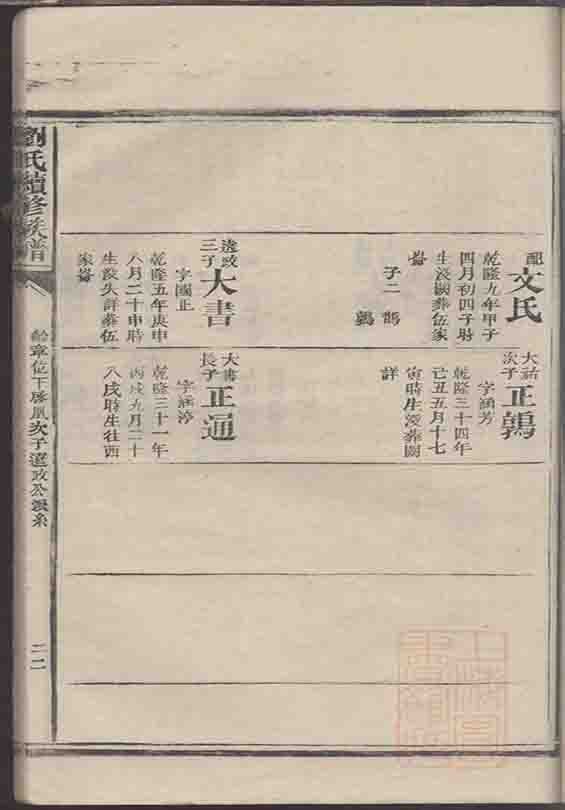 配
文氏
乾隆九年甲子
四月初四子時
生歿闕葬伍家
崙
子二 鵠
鶉
逸政
三子
大書
字國正
乾隆五年庚申
八月二十申時
生歿失詳葬伍
家崙
大祜
次子
正鶉
字涵芳
乾隆三十四年
己丑五月十七
寅時生歿葬闕
詳
大書
長子
正通
字涵淳
乾隆三十一年
丙戌九月二十
八戌時生往西
劉氏續修族譜
章位下勝鳳次子逸政公派系
二二